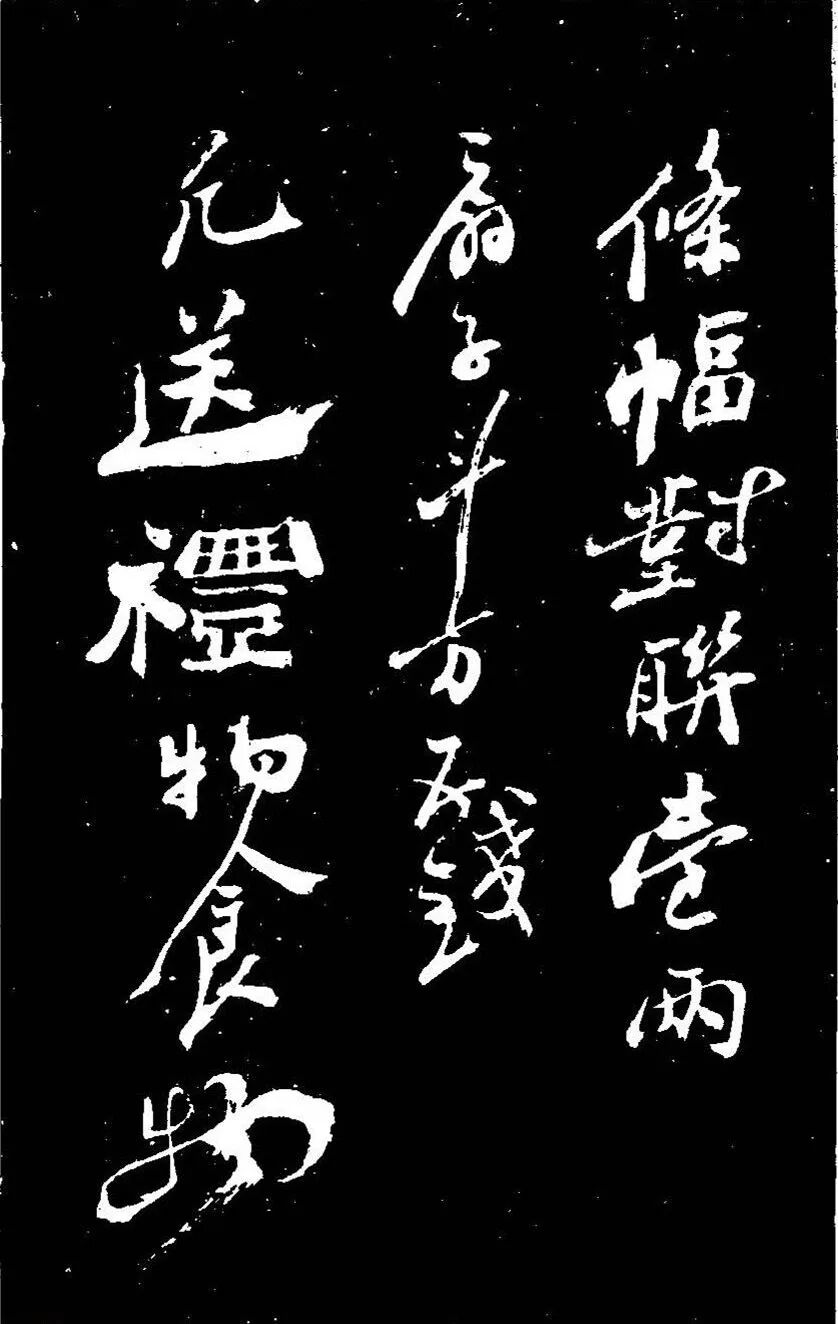 條幅對聯壹兩
扇子斗方五錢
凡送禮物食物